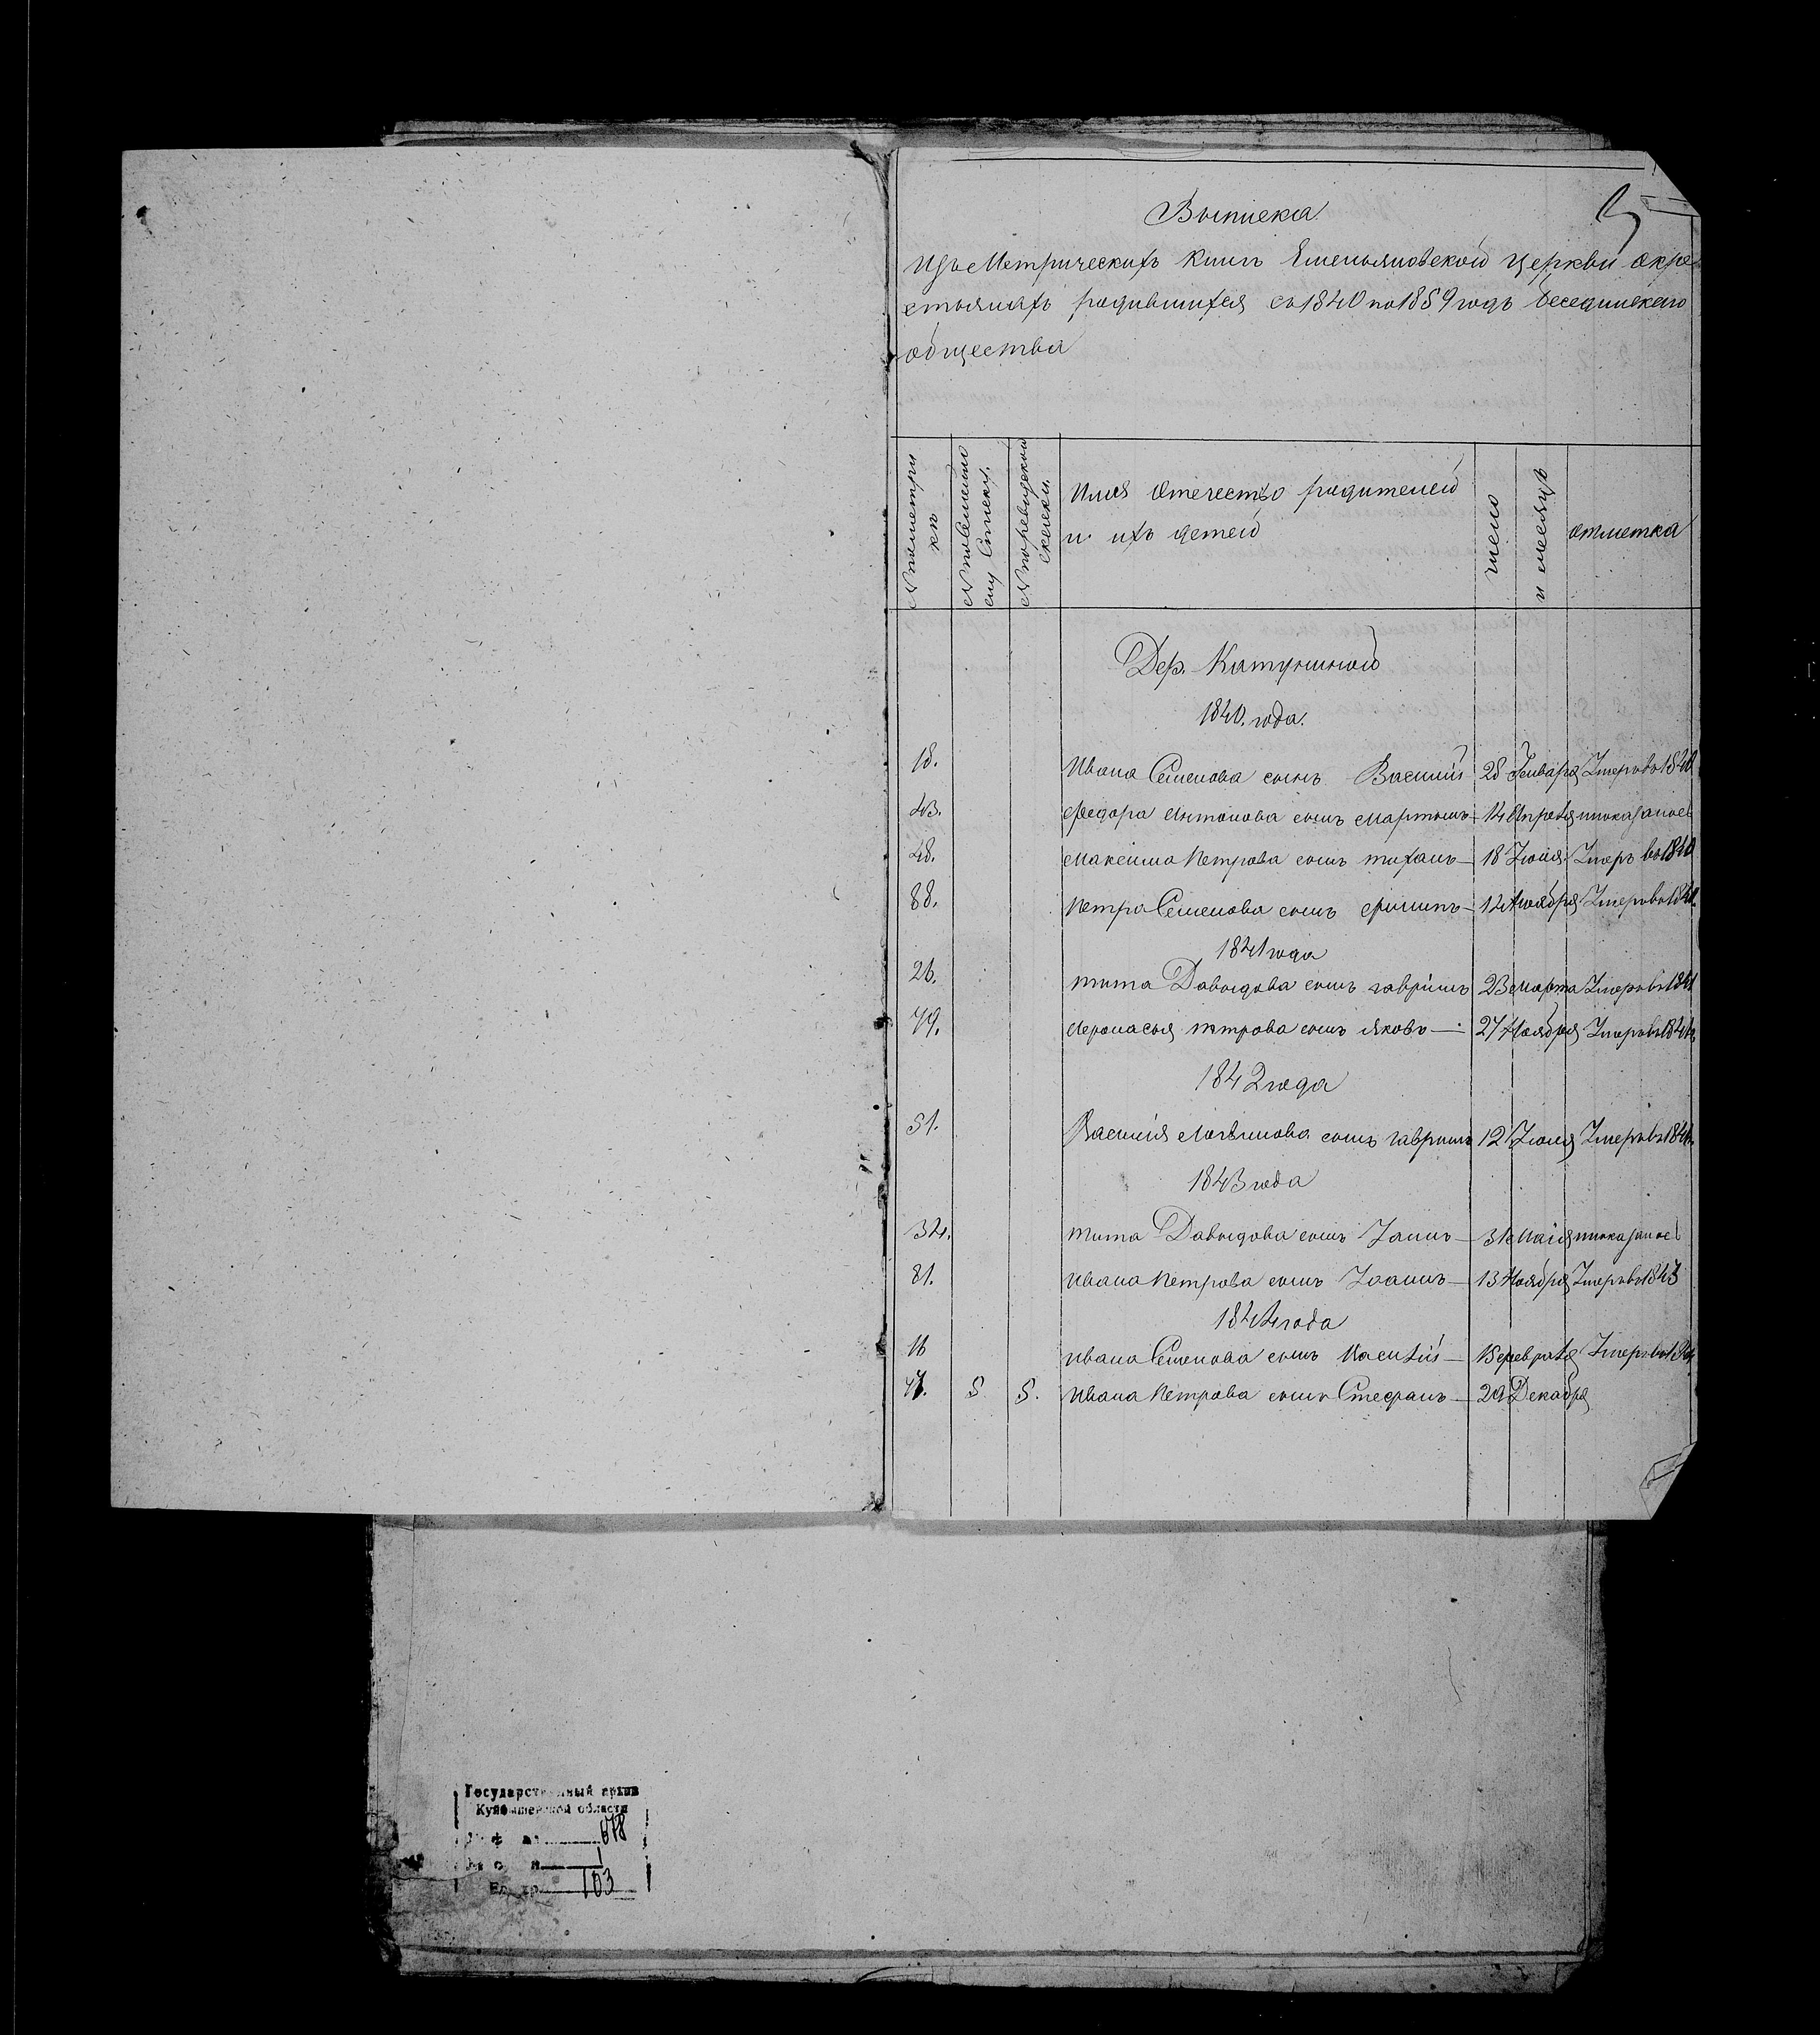 Выписка
Изъ Метрическихъ книгъ Емельяновской церкви окре
стьянахъ родившихся съ 1840 по 1859 годъ Беседицскаго
общества
№ пометри
кѣ
№ посемейно
му списку.
№ поревизской
скаски.
Имя отечество родителей
и ихъ детей
число
и месяцъ
отметка
Дер. Катуниной
1840. года.
18. Ивана Семенова сынъ Василий 28 Генваря Умеръ въ 1840
43. Федора Антонова сынъ Мартынъ 14 Апреля
48. Максима Петрова сынъ Тиханъ 18 Июня Умеръ въ 1840
88. Петра Семенова сынъ Филипъ 12 Ноября Умеръ въ 1840.
1841 года
26. Тита Давыдова сынъ Гаврiилъ 23 Марта Умеръ въ 1841
79. Афонасья Петрова сынъ Яковъ 27 Ноября Умеръ въ 1841
1842 года
51. Василия Логвинова сынъ Гаврилъ 12 Июня Умеръ въ
1843 года
34. Тита Давыдова сынъ Iанъ 31 Маiя
81. Ивана Петрова сынъ Iоанъ 13 Ноября Умеръ въ 1843
1844 года
16 Ивана Семенова сынъ Василiй 15 Февраля Умеръ въ
5 5. Ивана Петрова сынъ Стефанъ 29 Декабря
Государственный архив
Куйбышевской области
678
1
103